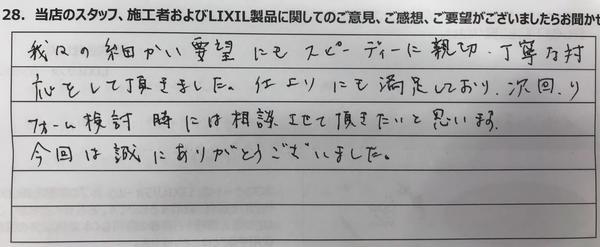 28. 当店のスタッフ、施工者およびLIXIL製品に関してのご意見、ご感想、ご要望がございましたらお聞かせ
我々の細かい要望にもスピーディーに親切、丁寧な対
応をして頂きました。仕上りにも満足しており、次回、リ
フォーム検討時には相談させて頂きたいと思います。
今回は誠にありがとうございました。